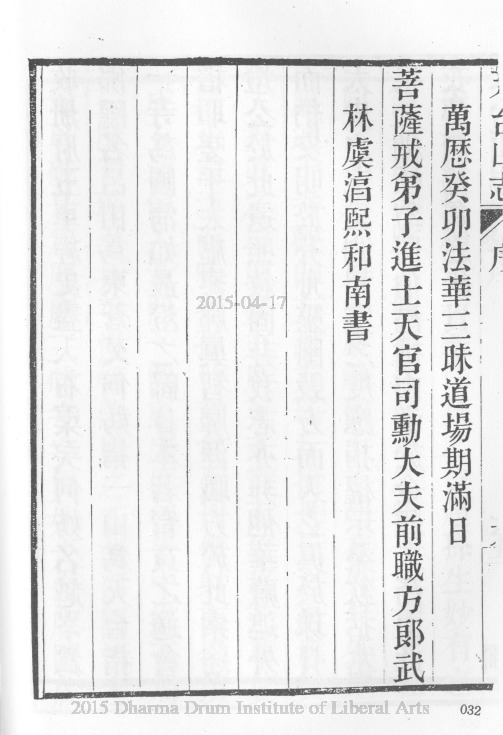 萬厯癸卯法華三昧道場期滿日
菩薩戒弟子進士天官司勳大夫前職方郎武
林虞淳熙和南書
2015-04-17
2015 Dharma Drum Institute of Liberal Arts
032